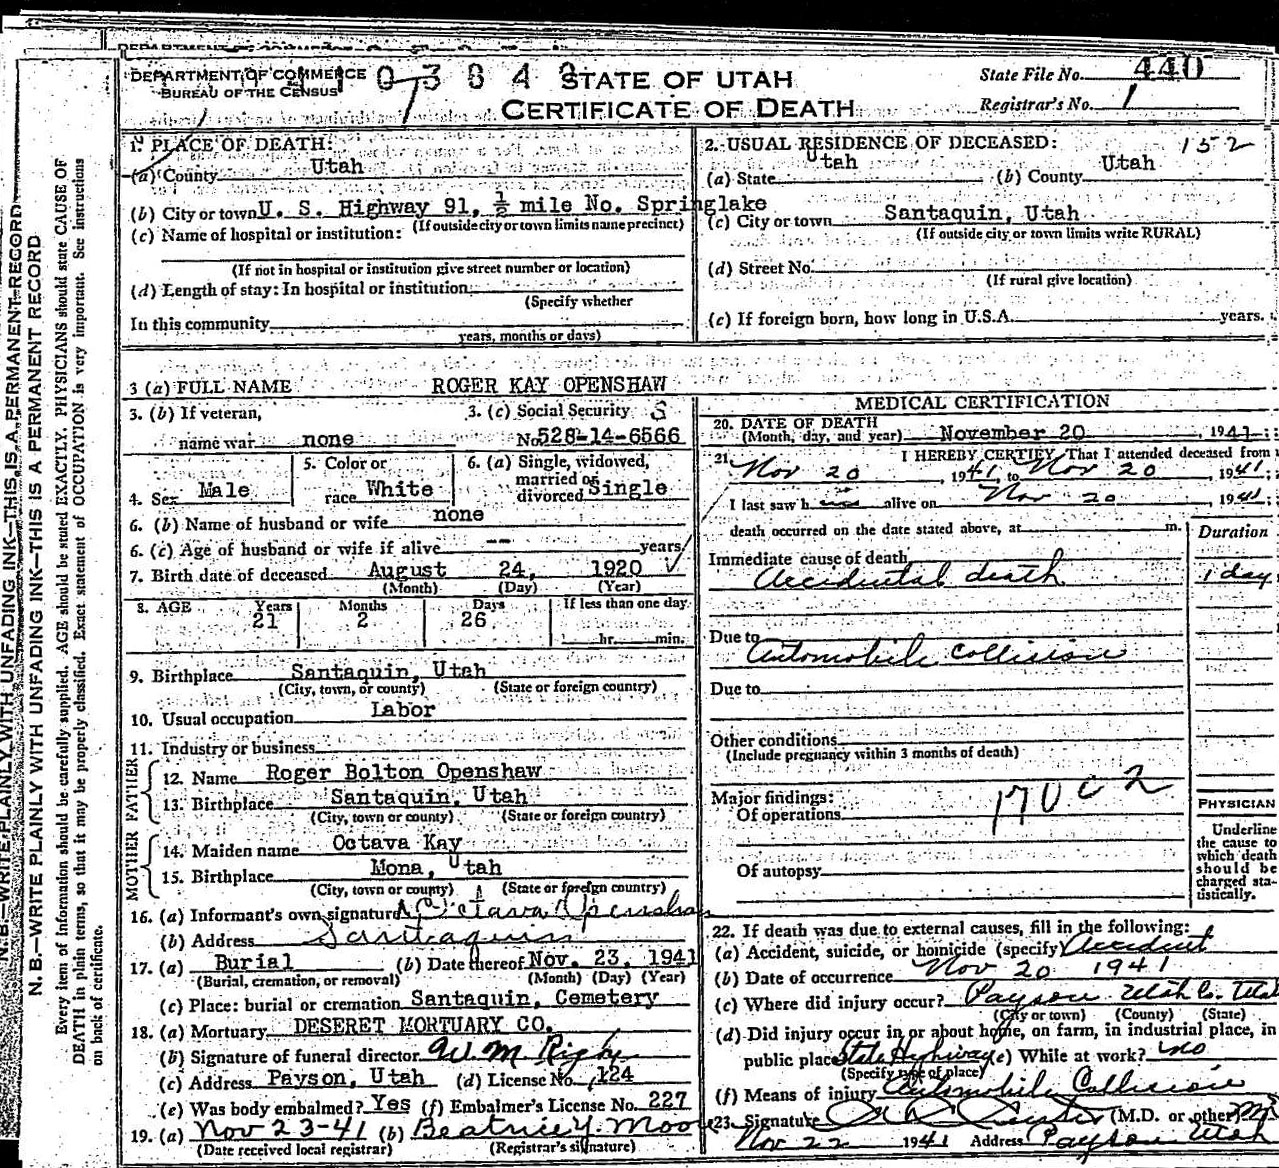 DEPARTMENT OF COMMERCE
BUREAU OF THE CENSUS
STATE OF UTAH
CERTIFICATE OF DEATH
State File No. 440
Registrar's No. 1
1. PLACE OF DEATH:
(a) County Utah
(b) City or town U. S. Highway 91, ½ mile No. Springlake
(If outside city or town limits name precinct)
(c) Name of hospital or institution:
(If not in hospital or institution give street number or location)
(d) Length of stay: In hospital or institution
(Specify whether
In this community
years, months or days)
2. USUAL RESIDENCE OF DECEASED: 152
(a) State Utah (b) County Utah
(c) City or town Santaquin, Utah
(If outside city or town limits write RURAL)
(d) Street No.
(If rural give location)
(e) If foreign born, how long in U.S.A. years.
3 (a) FULL NAME ROGER KAY OPENSHAW
3. (b) If veteran, name war none
3. (c) Social Security No. 528-14-6566
4. Sex Male
5. Color or race White
6. (a) Single, widowed, married or divorced Single
6. (b) Name of husband or wife none
6. (c) Age of husband or wife if alive -- years
7. Birth date of deceased August 24, 1920
(Month) (Day) (Year)
8. AGE Years Months Days If less than one day
21 2 26 hr. min.
9. Birthplace Santaquin, Utah
(City, town, or county) (State or foreign country)
10. Usual occupation Labor
11. Industry or business
FATHER
12. Name Roger Bolton Openshaw
13. Birthplace Santaquin, Utah
(City, town or county) (State or foreign country)
MOTHER
14. Maiden name Octava Kay
15. Birthplace Mona, Utah
(City, town or county) (State or foreign country)
16. (a) Informant's own signature Octava Openshaw
(b) Address Santaquin
17. (a) Burial (b) Date thereof Nov. 23, 1941
(Burial, cremation, or removal) (Month) (Day) (Year)
(c) Place: burial or cremation Santaquin, Cemetery
18. (a) Mortuary DESERET MORTUARY CO.
(b) Signature of funeral director W. M. Rigby
(c) Address Payson, Utah (d) License No. 124
(e) Was body embalmed? Yes (f) Embalmer's License No. 227
19. (a) Nov 23-41 (b) Beatrice Y. Moore
(Date received local registrar) (Registrar's signature)
MEDICAL CERTIFICATION
20. DATE OF DEATH
(Month, day, and year) November 20, 1941
21. I HEREBY CERTIFY, That I attended deceased from
Nov 20, 1941, to Nov 20, 1941
I last saw him alive on Nov 20 1941
death occurred on the date stated above, at m.
Duration
Immediate cause of death
Accidental death 1 day
Due to Automobile collision
Due to
Other conditions
(Include pregnancy within 3 months of death)
Major findings:
Of operations 170 c 2
Of autopsy
PHYSICIAN
Underline
the cause to
which death
should be
charged sta-
tistically.
22. If death was due to external causes, fill in the following:
(a) Accident, suicide, or homicide (specify) Accident
(b) Date of occurrence Nov 20 1941
(c) Where did injury occur? Payson Utah Co. Utah
(City or town) (County) (State)
(d) Did injury occur in or about home, on farm, in industrial place, in
public place State Highway (e) While at work? no
(Specify type of place)
(f) Means of injury Automobile Collision
23. Signature (M.D. or other)
Nov 22 1941 Address Payson Utah
N.B.—WRITE PLAINLY WITH UNFADING INK—THIS IS A PERMANENT RECORD
N.B.—WRITE PLAINLY WITH UNFADING INK—THIS IS A PERMANENT RECORD
Every item of information should be carefully supplied. AGE should be stated EXACTLY. PHYSICIANS should state CAUSE OF
DEATH in plain terms, so that it may be properly classified. Exact statement of OCCUPATION is very important. See instructions
on back of certificate.